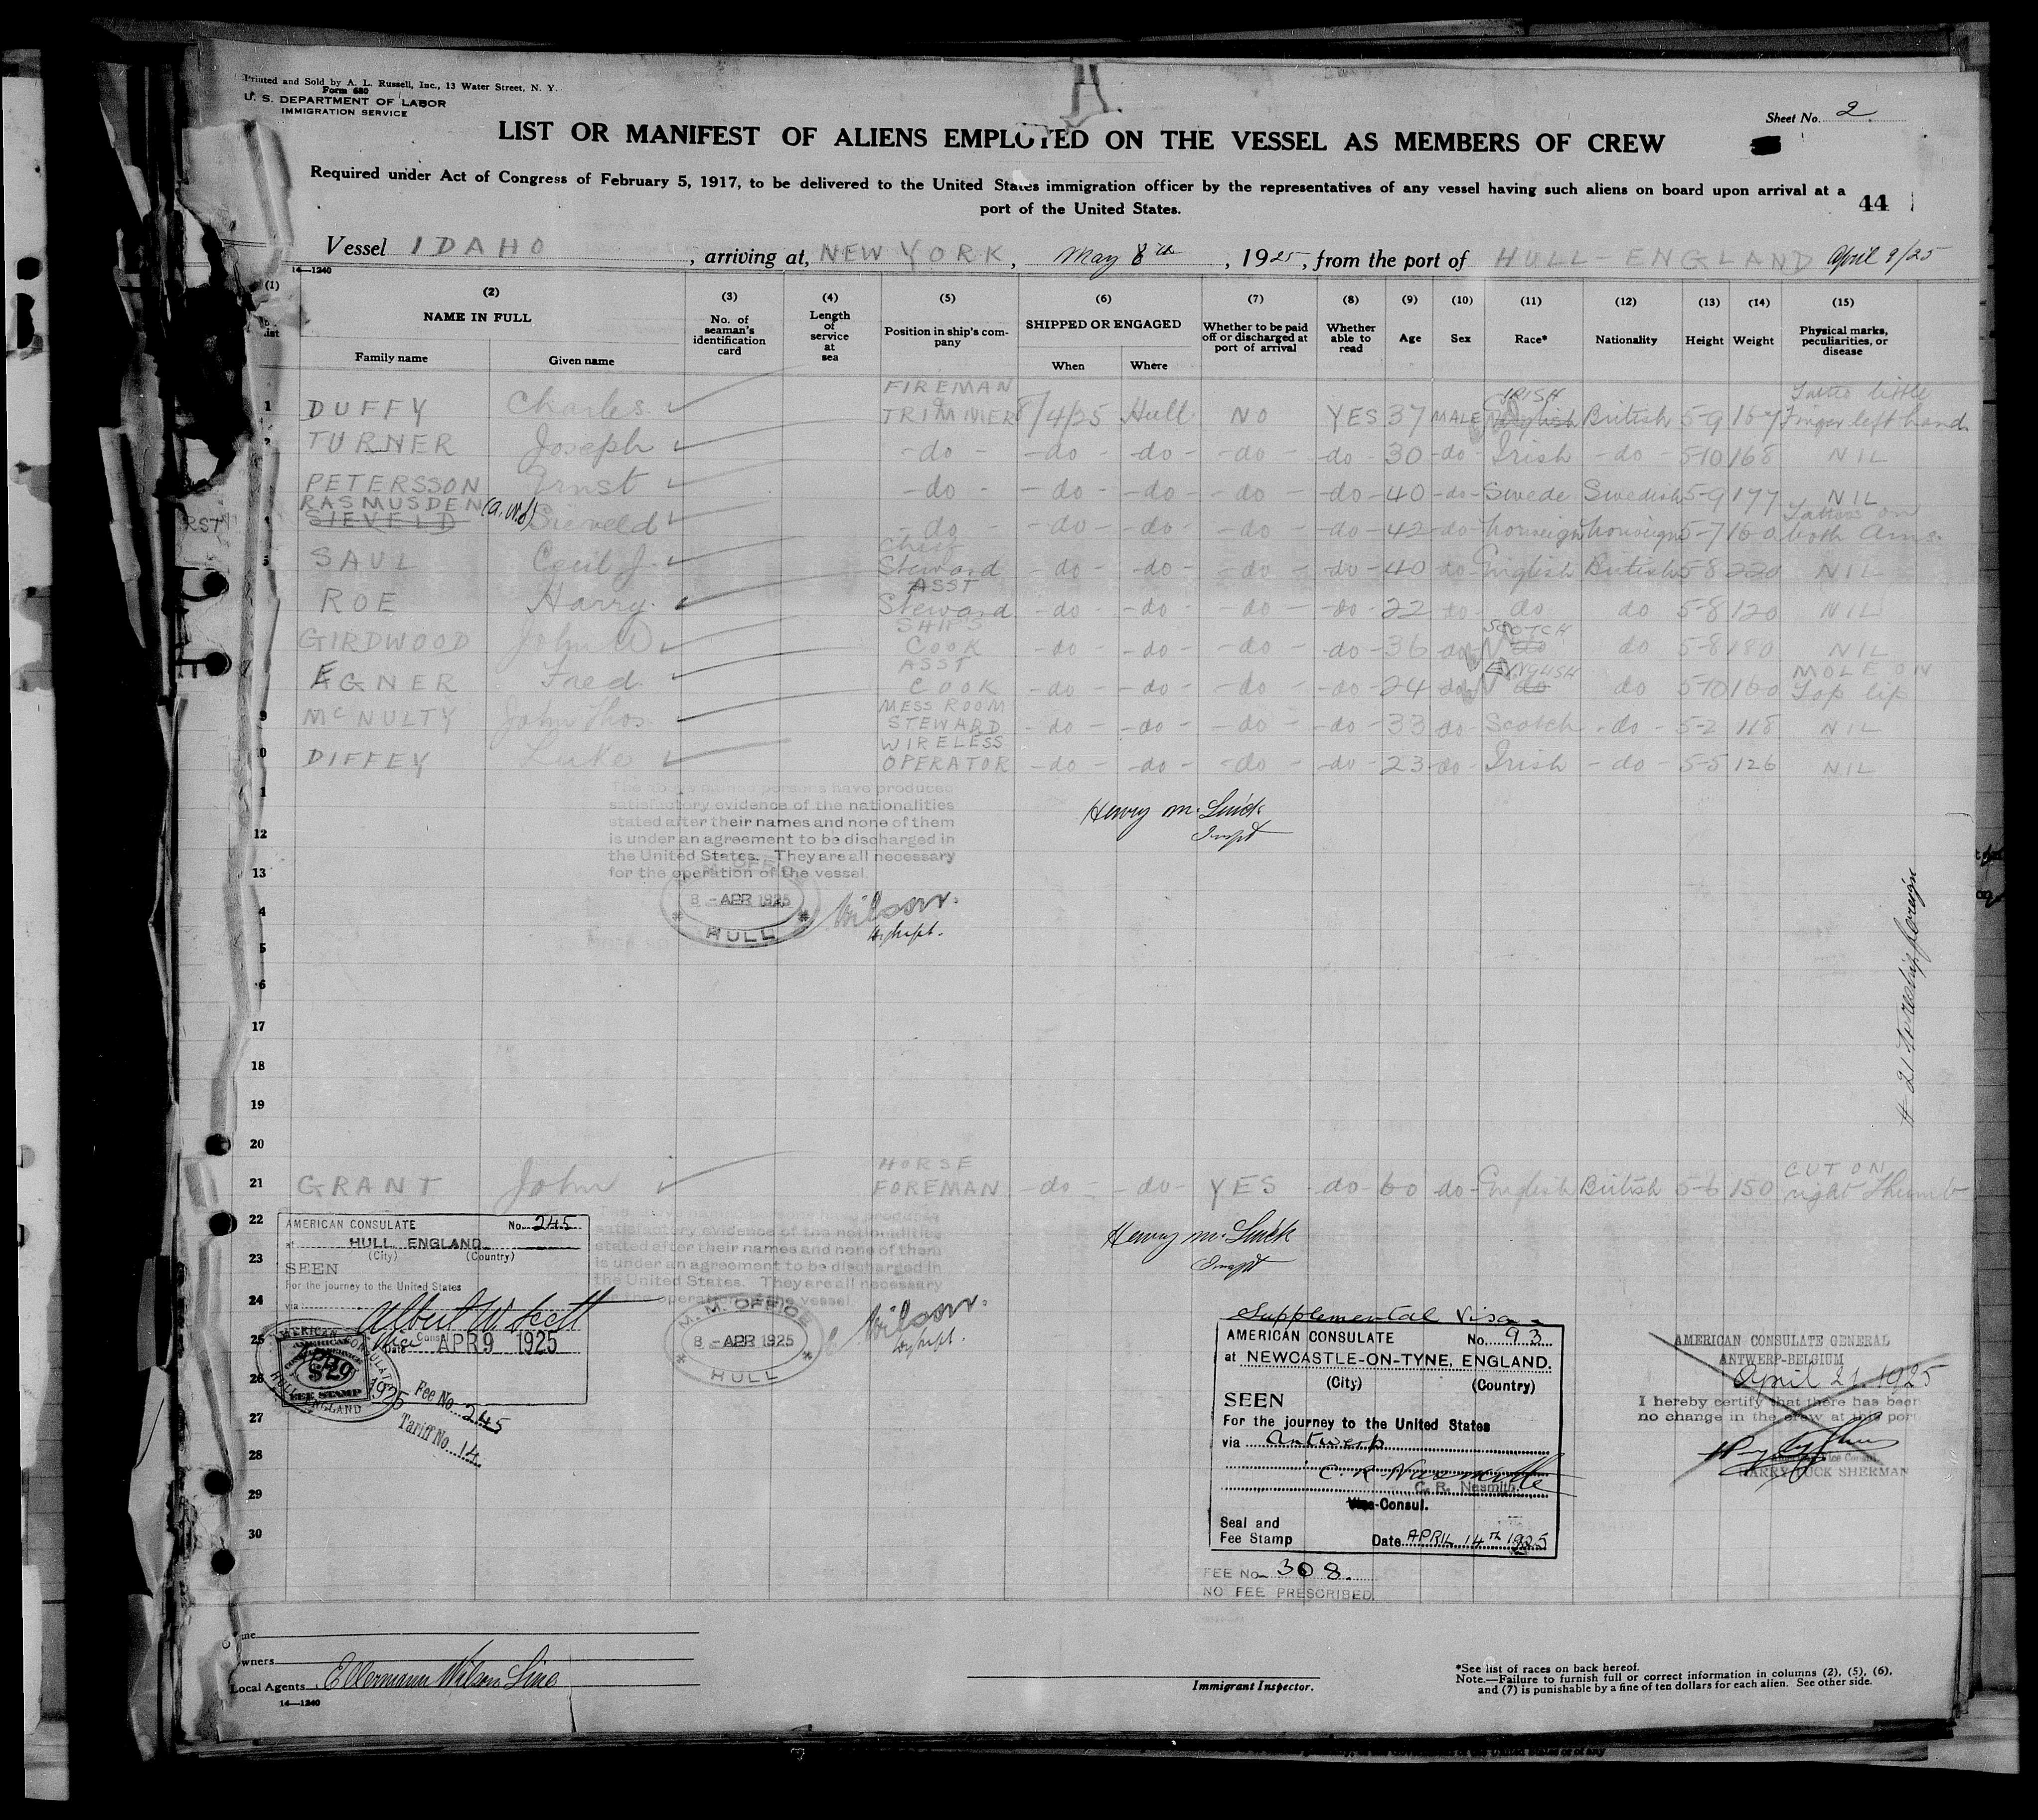 Printed and Sold by A. L. Russell, Inc., 13 Water Street, N. Y.
Form 680
U. S. DEPARTMENT OF LABOR
IMMIGRATION SERVICE
A.
Sheet No. 2
LIST OR MANIFEST OF ALIENS EMPLOYED ON THE VESSEL AS MEMBERS OF CREW
Required under Act of Congress of February 5, 1917, to be delivered to the United States immigration officer by the representatives of any vessel having such aliens on board upon arrival at a
port of the United States.
44
Vessel IDAHO, arriving at, NEW YORK, May 8th, 1925, from the port of HULL - ENGLAND April 9/25
14-1240
(1) (2) (3) (4) (5) (6) (7) (8) (9) (10) (11) (12) (13) (14) (15)
NAME IN FULL
Family name Given name
No. of seaman's identification card
Length of service at sea
Position in ship's company
SHIPPED OR ENGAGED
When Where
Whether to be paid off or discharged at port of arrival
Whether able to read
Age Sex Race* Nationality Height Weight
Physical marks, peculiarities, or disease
1 DUFFY Charles FIREMAN & TRIMMER 8/4/25 Hull NO YES 37 MALE IRISH English British 5-9 167 Tattoo little Finger left hand.
TURNER Joseph -do- -do- -do- -do- -do- 30 -do- Irish -do- 5-10 168 NIL
PETERSSON Ernst -do- -do- -do- -do- -do- 40 -do- Swede Swedish 5-9 177 NIL
RST RASMUSDEN SIEVELD Sieveld -do- -do- -do- -do- -do- 42 -do- 5-7 160 Tattoos on both Arms.
5 SAUL Cecil J. Chief Steward -do- -do- -do- -do- 40 do English British 5-8 220 NIL
ROE Harry. ASST Steward -do- -do- -do- -do- 22 do do do 5-8 120 NIL
7 GIRDWOOD John W SHIP'S COOK -do- -do- -do- -do- 36 do SCOTCH do do 5-8 180 NIL
EGNER Fred. ASST COOK -do- -do- -do- -do- 24 do ENGLISH do do 5-10 160 MOLE ON Top lip
9 McNULTY John Thos. MESS ROOM STEWARD -do- -do- -do- -do- 33 do Scotch -do- 5-2 118 NIL
10 DIFFEY Luke WIRELESS OPERATOR -do- -do- -do- -do- 23 do Irish -do- 5-5 126 NIL
The above named persons have produced
satisfactory evidence of the nationalities
stated after their names and none of them
is under an agreement to be discharged in
the United States. They are all necessary
for the operation of the vessel.
M. M. OFFICE
8 - APR 1925
HULL
Wilson.
Inspt
12
13
4
5
6
17
18
19
20
21 GRANT John HORSE FOREMAN -do- -do- YES -do- 60 do English British 5-6 150 CUT ON right Thumb
22
23
24
25
26
27
28
29
30
AMERICAN CONSULATE No. 245
at HULL, ENGLAND
(City) (Country)
SEEN
For the journey to the United States
via
Albert W. Scott
Vice Consul APR 9 1925
Fee No. 245
Tariff No. 14
AMERICAN CONSULATE
HULL, ENGLAND
FEE STAMP
satisfactory evidence of the nationalities
stated after their names and none of them
is under an agreement to be discharged in
the United States. They are all necessary
for the operation of the vessel
M. M. OFFICE
8 - APR 1925
HULL
Wilson.
Inspt
Supplemental Visa
AMERICAN CONSULATE No. 93
at NEWCASTLE-ON-TYNE, ENGLAND.
(City) (Country)
SEEN
For the journey to the United States
via Antwerp
C. R. Nasmith
Vice-Consul.
Seal and
Fee Stamp Date APRIL 14TH 1925
FEE No. 308.
NO FEE PRESCRIBED.
AMERICAN CONSULATE GENERAL
ANTWERP-BELGIUM
April 21. 1925
I hereby certify that there has been
no change in the crew at this port
Vice Consul
HARRY TUCK SHERMAN
# 21 to reship foreign
Owners
Local Agents Ellermans Wilson Line
14-1240
Immigrant Inspector.
*See list of races on back hereof.
Note.—Failure to furnish full or correct information in columns (2), (5), (6),
and (7) is punishable by a fine of ten dollars for each alien. See other side.